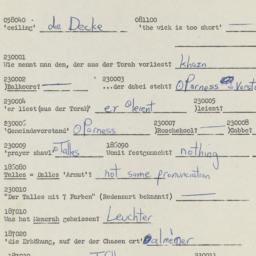 058040 'ceiling' die Decke 081100 'the wick is too short'
230001
Wie nennt man den, der aus der Torah vorliest? khazn
230002 [Balkore]? 230003 ...der dabei steht? Parness
230004 'er liest (aus der Torah)' er leient 230005 [leient]
230006 'Gemeindevorstand' Parness 230007 [Roschekool]? 230008 [Gabbe]
230009 'prayer shawl' Talles 185090 Womit festgemacht? nothing
185080
Talles = Dalles 'Armut'? not same pronunciation
230010
"Der Talles mit 7 Farben" (Redensart bekannt?)
187010
Was hat Menorah geheissen? Leuchter
187020
'die Erhöhung, auf der der Chasen ort' Oalmemer
187030